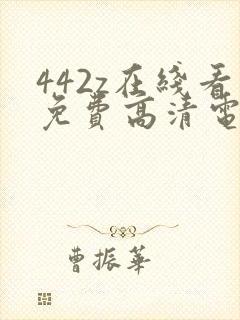 442z在綫看
免費高清電
曹振華